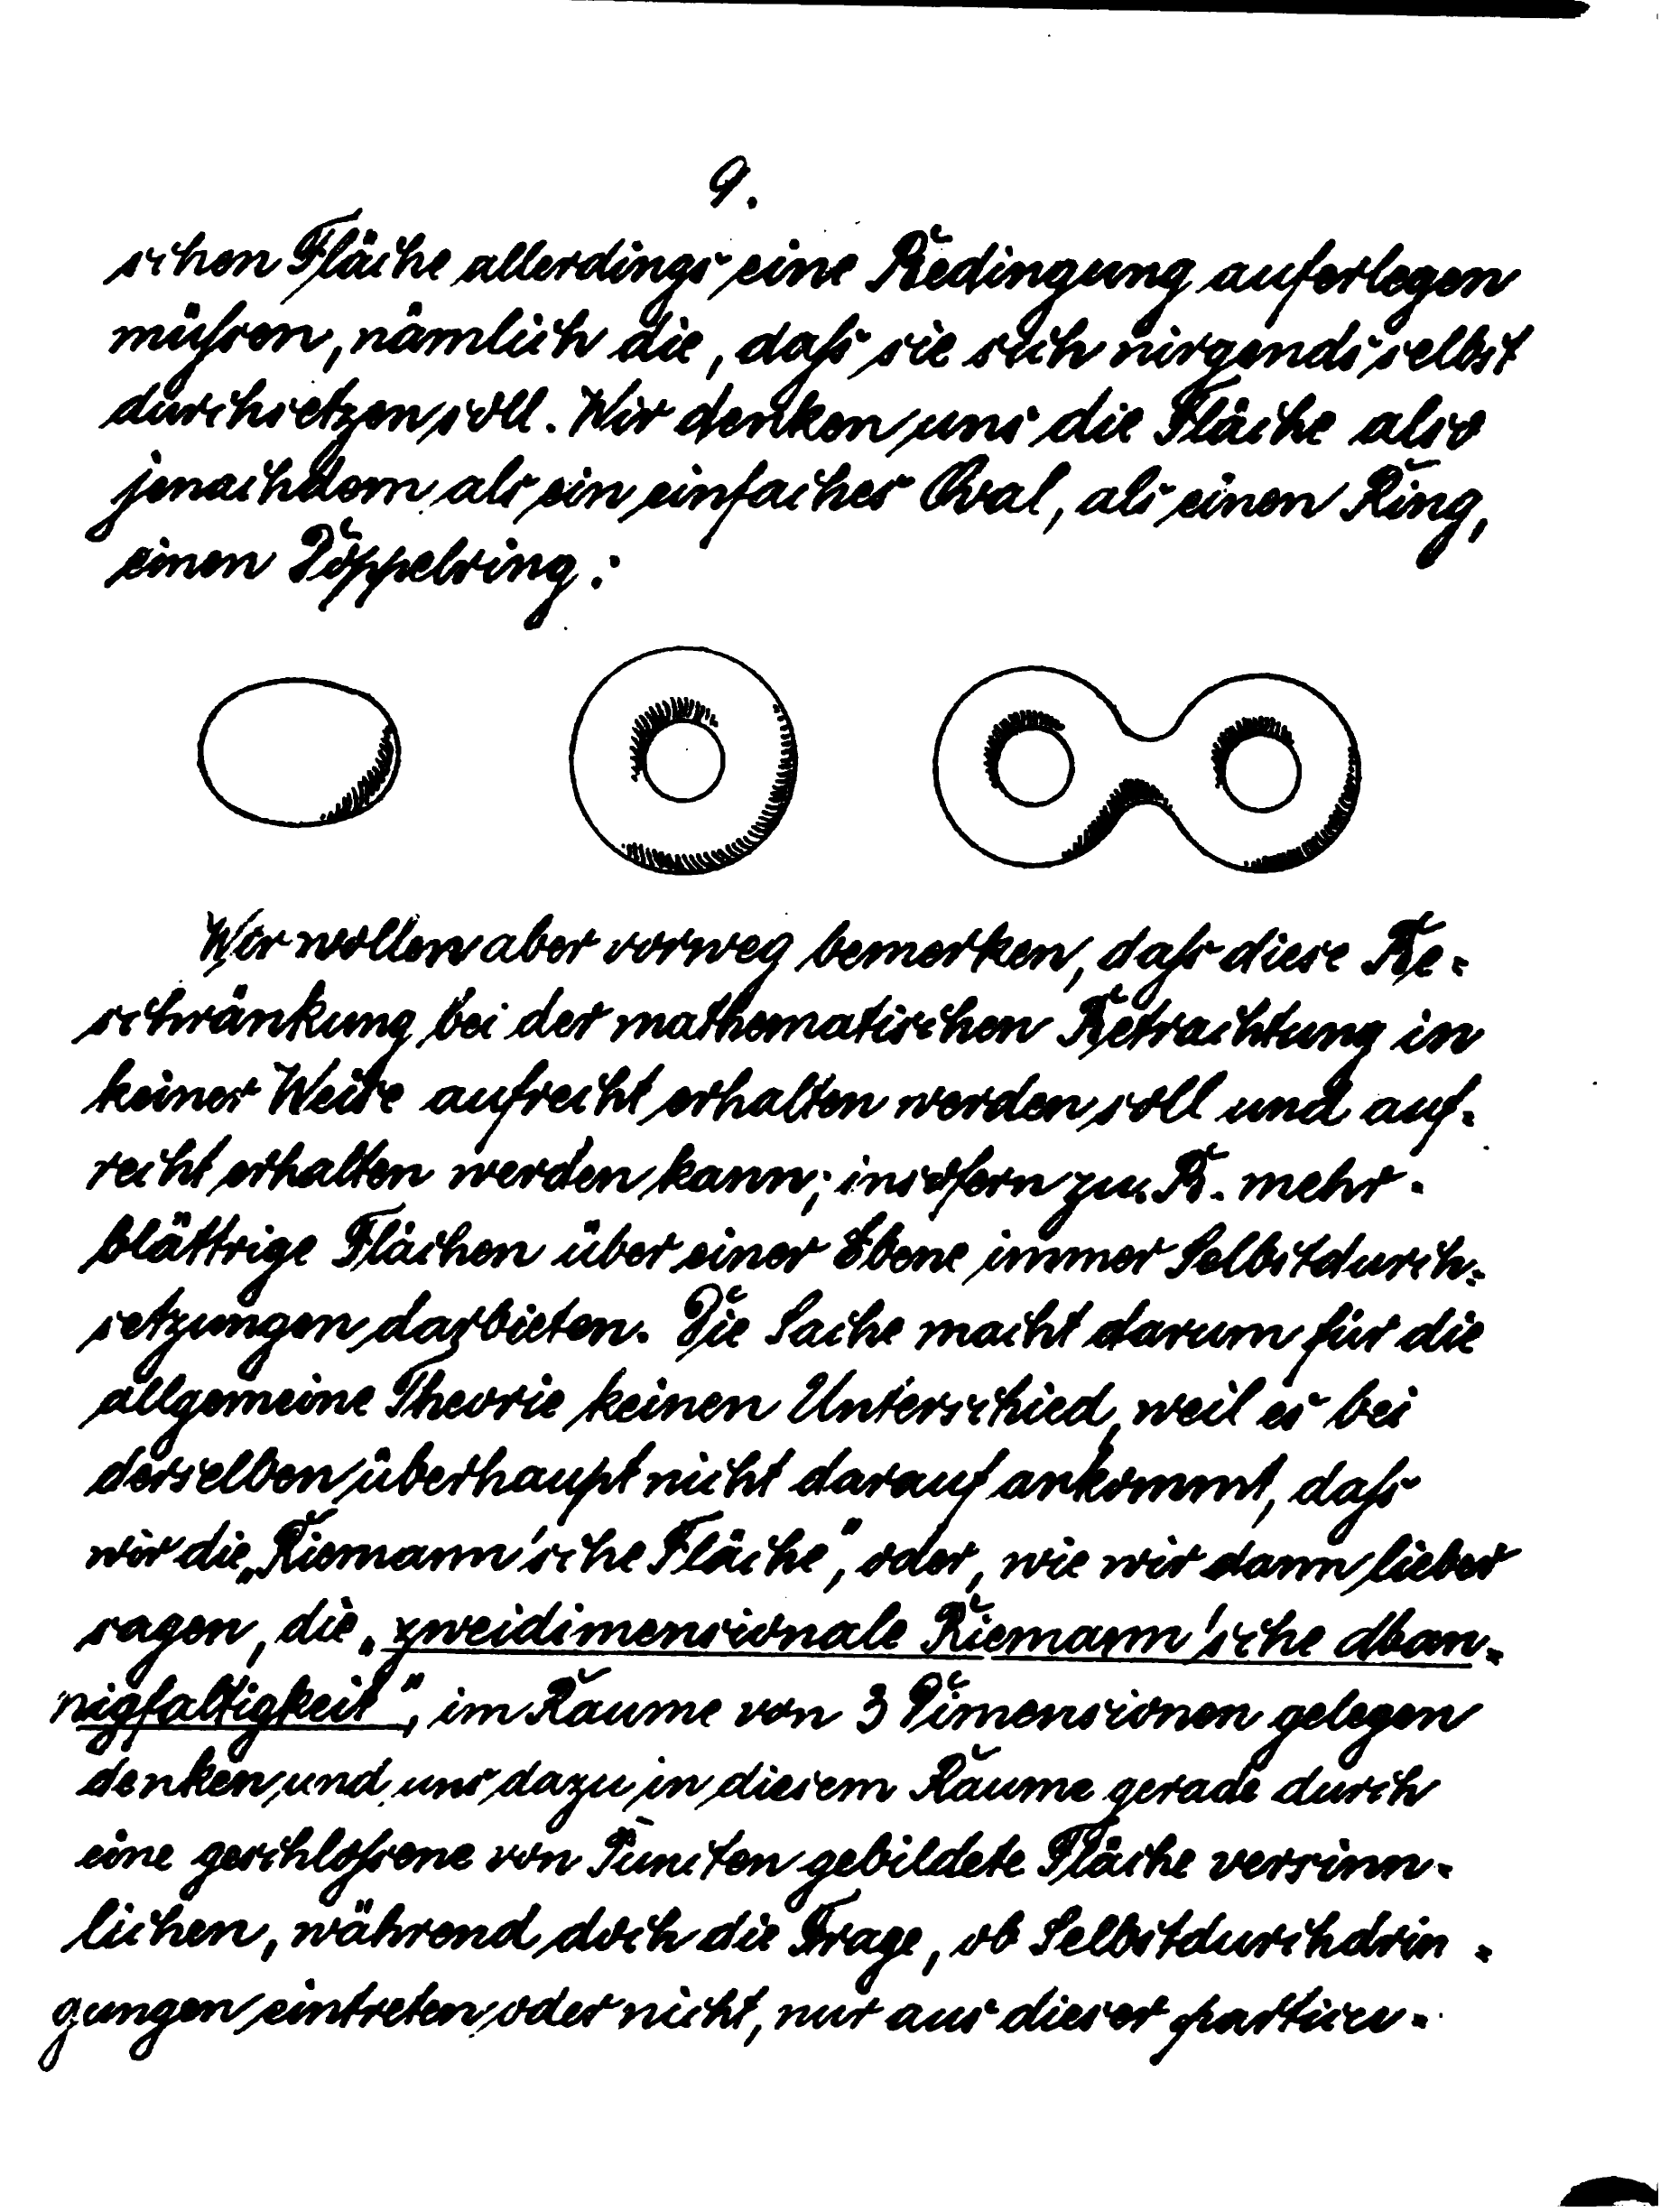 9.
schen Fläche allerdings eine Bedingung auferlegen
müssen, nämlich die, dass sie sich nirgends selbst
durchsetzen soll. Wir denken uns die Fläche also
jenachdem als ein einfaches Oval, als einen Ring,
einen Doppelring:
Wir wollen aber vorweg bemerken, dass diese Be-
schränkung bei der mathematischen Betrachtung in
keiner Weise aufrecht erhalten werden soll und auf-
recht erhalten werden kann; insofern zu. B. mehr-
blättrige Flächen über einer Ebene immer Selbstdurch-
setzungen darbieten. Die Sache macht darum für die
allgemeine Theorie keinen Unterschied, weil es bei
derselben überhaupt nicht darauf ankommt, dass
wir die „Riemann'sche Fläche", oder, wie wir dann lieber
sagen, die „zweidimensionale Riemann'sche Man-
nigfaltigkeit", im Raume von 3 Dimensionen gelegen
denken und uns dazu in diesem Raume gerade durch
eine geschlossene von Puncten gebildete Fläche versinn-
lichen, während doch die Frage, ob Selbstdurchdrin-
gungen eintreten oder nicht, nur aus dieser particu-